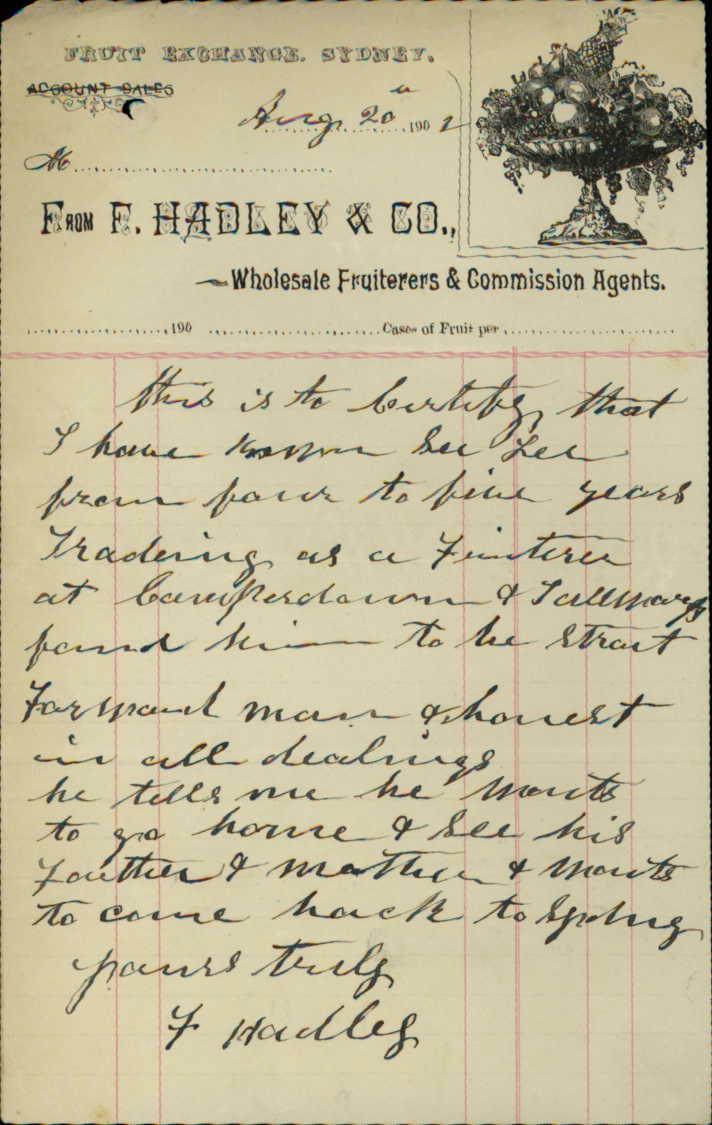 FRUIT EXCHANGE. SYDNEY.
ACCOUNT SALES
Aug 20 190
M
FROM F. HADLEY & CO.,
Wholesale Fruiterers & Commission Agents.
190 Cases of Fruit per
this is to Certify that
I have known See Lee
from four to five years
Tradeing as a
at Camperdown &
found him to be Strait
Forward man & honest
in all dealings
he tells me he wants
to go home & See his
Father & Mother & wants
to come back to Sydney
yours truly
F Hadley